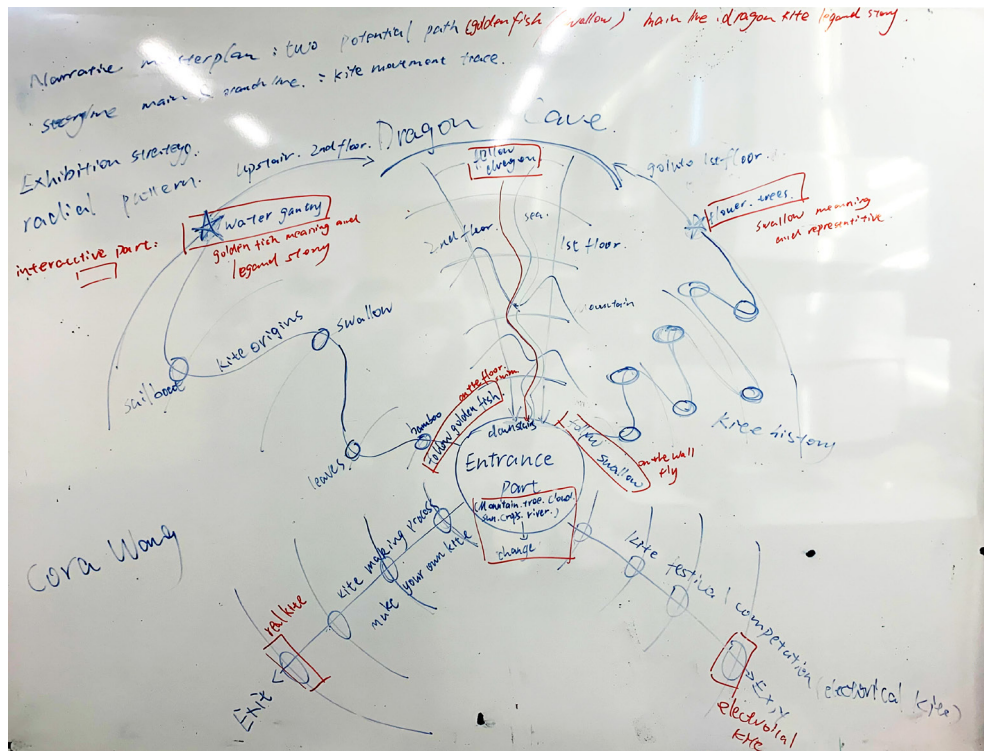 Narrative masterplan : two potential path (golden fish / swallow) main line : dragon kite legand story
storyline main & branch line. : kite movement trace.
Exhibition strategy.
radial pattern.
Upstair. 2nd floor.
Dragon Cave.
follow dragon
go into 1st floor.
water gantry
golden fish meaning and
legand story
interactive part:
flower. trees.
swallow meaning
and representitive.
2nd floor
sea.
1st floor.
mountain
kite origins
swallow
leaves
bamboo
follow golden fish
on the floor.
swim
downstairs
follow
swallow
on the wall
fly
kite history
Entrance
part
(Mountain. tree. cloud.
river.)
change
Cora Wang
kite making process
make your own kite
real kite
Exit
kite festival competation (electorical kite)
Exit
electroical
kite